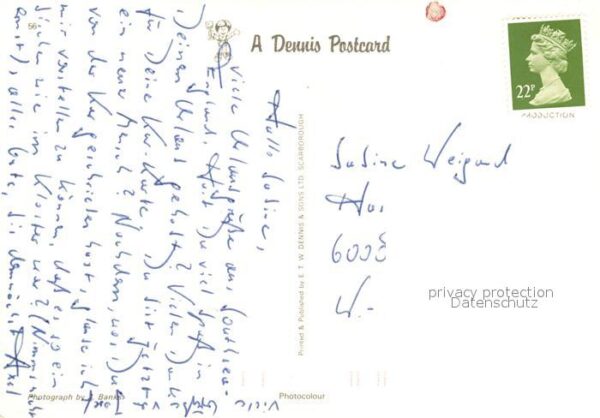 56
A Dennis Postcard
22P
PRODUCTION
Hallo Sabine,
viele Urlaubsgrüße aus Southsea-
England. Hast Du viel Spaß in
Deinem Urlaub gehabt? Vielen Dank
für Deine Kur-Karte, Du bist jetzt
ein neuer Mensch? Nachdem, was Du
von der Kur geschrieben hast, glaube ich
mir vorstellen zu können, daß es so ein
bißchen wie im Kloster war? (Nimm's nicht
ernst), alles Gute, bis demnächst Axel
Viele
Printed & Published by E. T. W. DENNIS & SONS LTD. SCARBOROUGH
Sabine Weigand
6008
W.-
privacy protection
Datenschutz
Photograph by Bankes
Photocolour